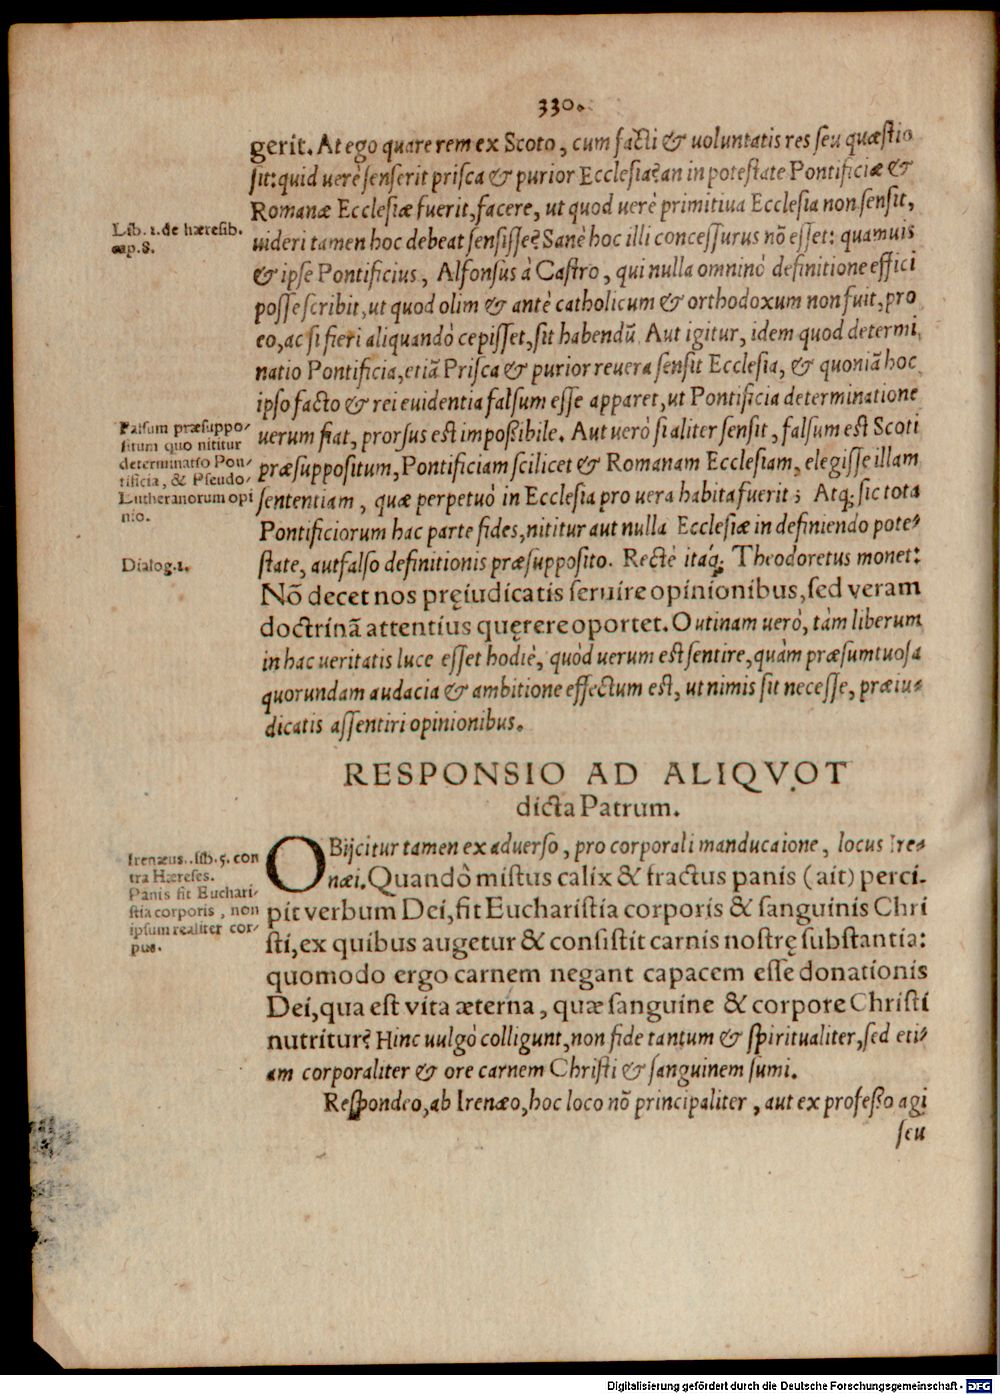 330.
gerit. At ego quarerem ex Scoto, cum facti & uoluntatis res seu quæstio
sit: quid uerè senserit prisca & purior Ecclesia? an in potestate Pontificiæ &
Romanæ Ecclesiæ fuerit, facere, ut quod uerè primitiua Ecclesia non sensit,
Lib. 1. de hæresib.
cap. 8.
uideri tamen hoc debeat sensisse? Sanè hoc illi concessurus nõ esset: quamuis
& ipse Pontificius, Alfonsus à Castro, qui nulla omninò definitione effici
posse scribit, ut quod olim & antè catholicum & orthodoxum non fuit, pro
eo, ac si fieri aliquandò cepisset, sit habendũ. Aut igitur, idem quod determi
natio Pontificia, etiã Prisca & purior reuera sensit Ecclesia, & quoniã hoc
ipso facto & rei euidentia falsum esse apparet, ut Pontificia determinatione
Falsum præsuppo-
situm quo nititur
determinatio Pon-
tificia, & Pseudo-
Lutheranorum opi
nio.
uerum fiat, prorsus est impoßibile. Aut uerò si aliter sensit, falsum est Scoti
præsuppositum, Pontificiam scilicet & Romanam Ecclesiam, elegisse illam
sententiam, quæ perpetuò in Ecclesia pro uera habita fuerit; Atq; sic tota
Pontificiorum hac parte fides, nititur aut nulla Ecclesiæ in definiendo pote-
Dialog. 1.
state, aut falso definitionis præsupposito. Rectè itaq; Theodoretus monet:
Nõ decet nos pręiudicatis seruire opinionibus, sed veram
doctrinã attentius quęrere oportet. O utinam uerò, tàm liberum
in hac ueritatis luce esset hodiè, quòd uerum est sentire, quàm præsumtuosa
quorundam audacia & ambitione effectum est, ut nimis sit necesse, præiu-
dicatis assentiri opinionibus.
RESPONSIO AD ALIQVOT
dicta Patrum.
Irenæus. lib. 5. con
tra Hæreses.
Panis fit Euchari-
stia corporis, non
ipsum realiter cor-
pus.
OBijcitur tamen ex aduerso, pro corporali manducaione, locus Ire-
næi. Quandò mistus calix & fractus panis (ait) perci-
pit verbum Dei, fit Eucharistia corporis & sanguinis Chri
sti, ex quibus augetur & consistit carnis nostrę substantia:
quomodo ergo carnem negant capacem esse donationis
Dei, qua est vita æterna, quæ sanguine & corpore Christi
nutritur? Hinc uulgò colligunt, non fide tantum & spiritualiter, sed eti-
am corporaliter & ore carnem Christi & sanguinem sumi.
Respondeo, ab Irenæo, hoc loco nõ principaliter, aut ex profeßo agi
seu
Digitalisierung gefördert durch die Deutsche Forschungsgemeinschaft - DFG